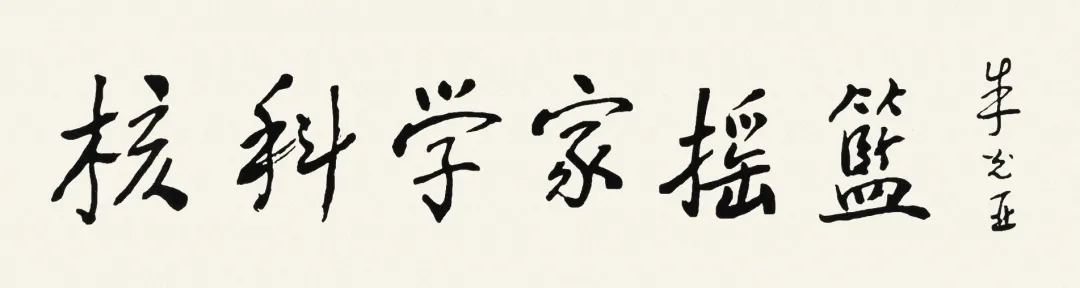 核科学家摇篮
朱光亚